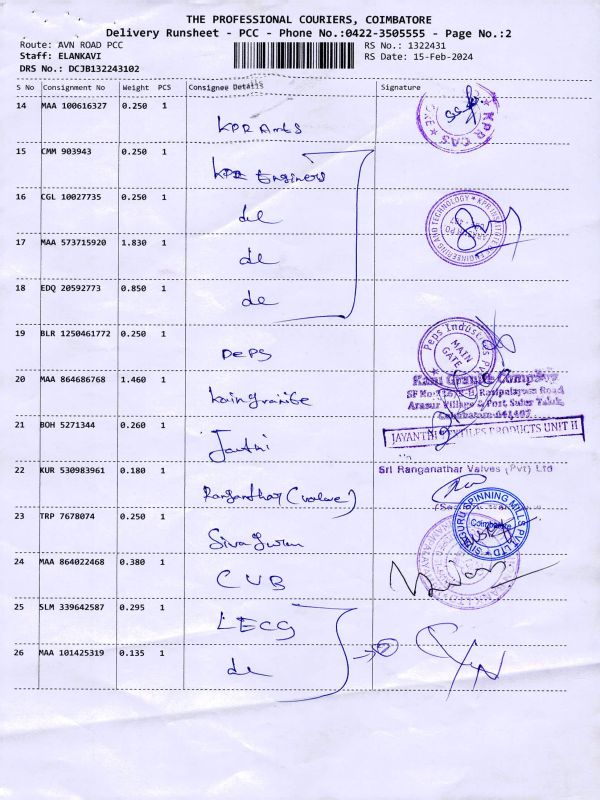 THE PROFESSIONAL COURIERS, COIMBATORE
Delivery Runsheet - PCC - Phone No.:0422-3505555 - Page No.:2
Route: AVN ROAD PCC RS No.: 1322431
Staff: ELANKAVI RS Date: 15-Feb-2024
DRS No.: DCJB132243102
S No Consignment No Weight PCS Consignee Details Signature
14 MAA 100616327 0.250 1 KPR Arts
KPR CAS
15 CMM 903943 0.250 1 KPR Engineers
16 CGL 10027735 0.250 1 do
KPR INSTITUTE ENGINEERING AND TECHNOLOGY
17 MAA 573715920 1.830 1 do
18 EDQ 20592773 0.850 1 do
19 BLR 1250461772 0.250 1 PEPS
Peps Industries
MAIN GATE
20 MAA 864686768 1.460 1
Granite Company
Arasur Village & Post Sulur Taluk,
21 BOH 5271344 0.260 1
JAYANTHI TEXTILES PRODUCTS UNIT II
22 KUR 530983961 0.180 1 Ranganathar (valve)
Sri Ranganathar Valves (Pvt) Ltd
23 TRP 7678074 0.250 1 Sivaguru
SIVAGURU SPINNING MILLS PVT LTD
Coimbatore
24 MAA 864022468 0.380 1 CUB
25 SLM 339642587 0.295 1 LECG
26 MAA 101425319 0.135 1 do